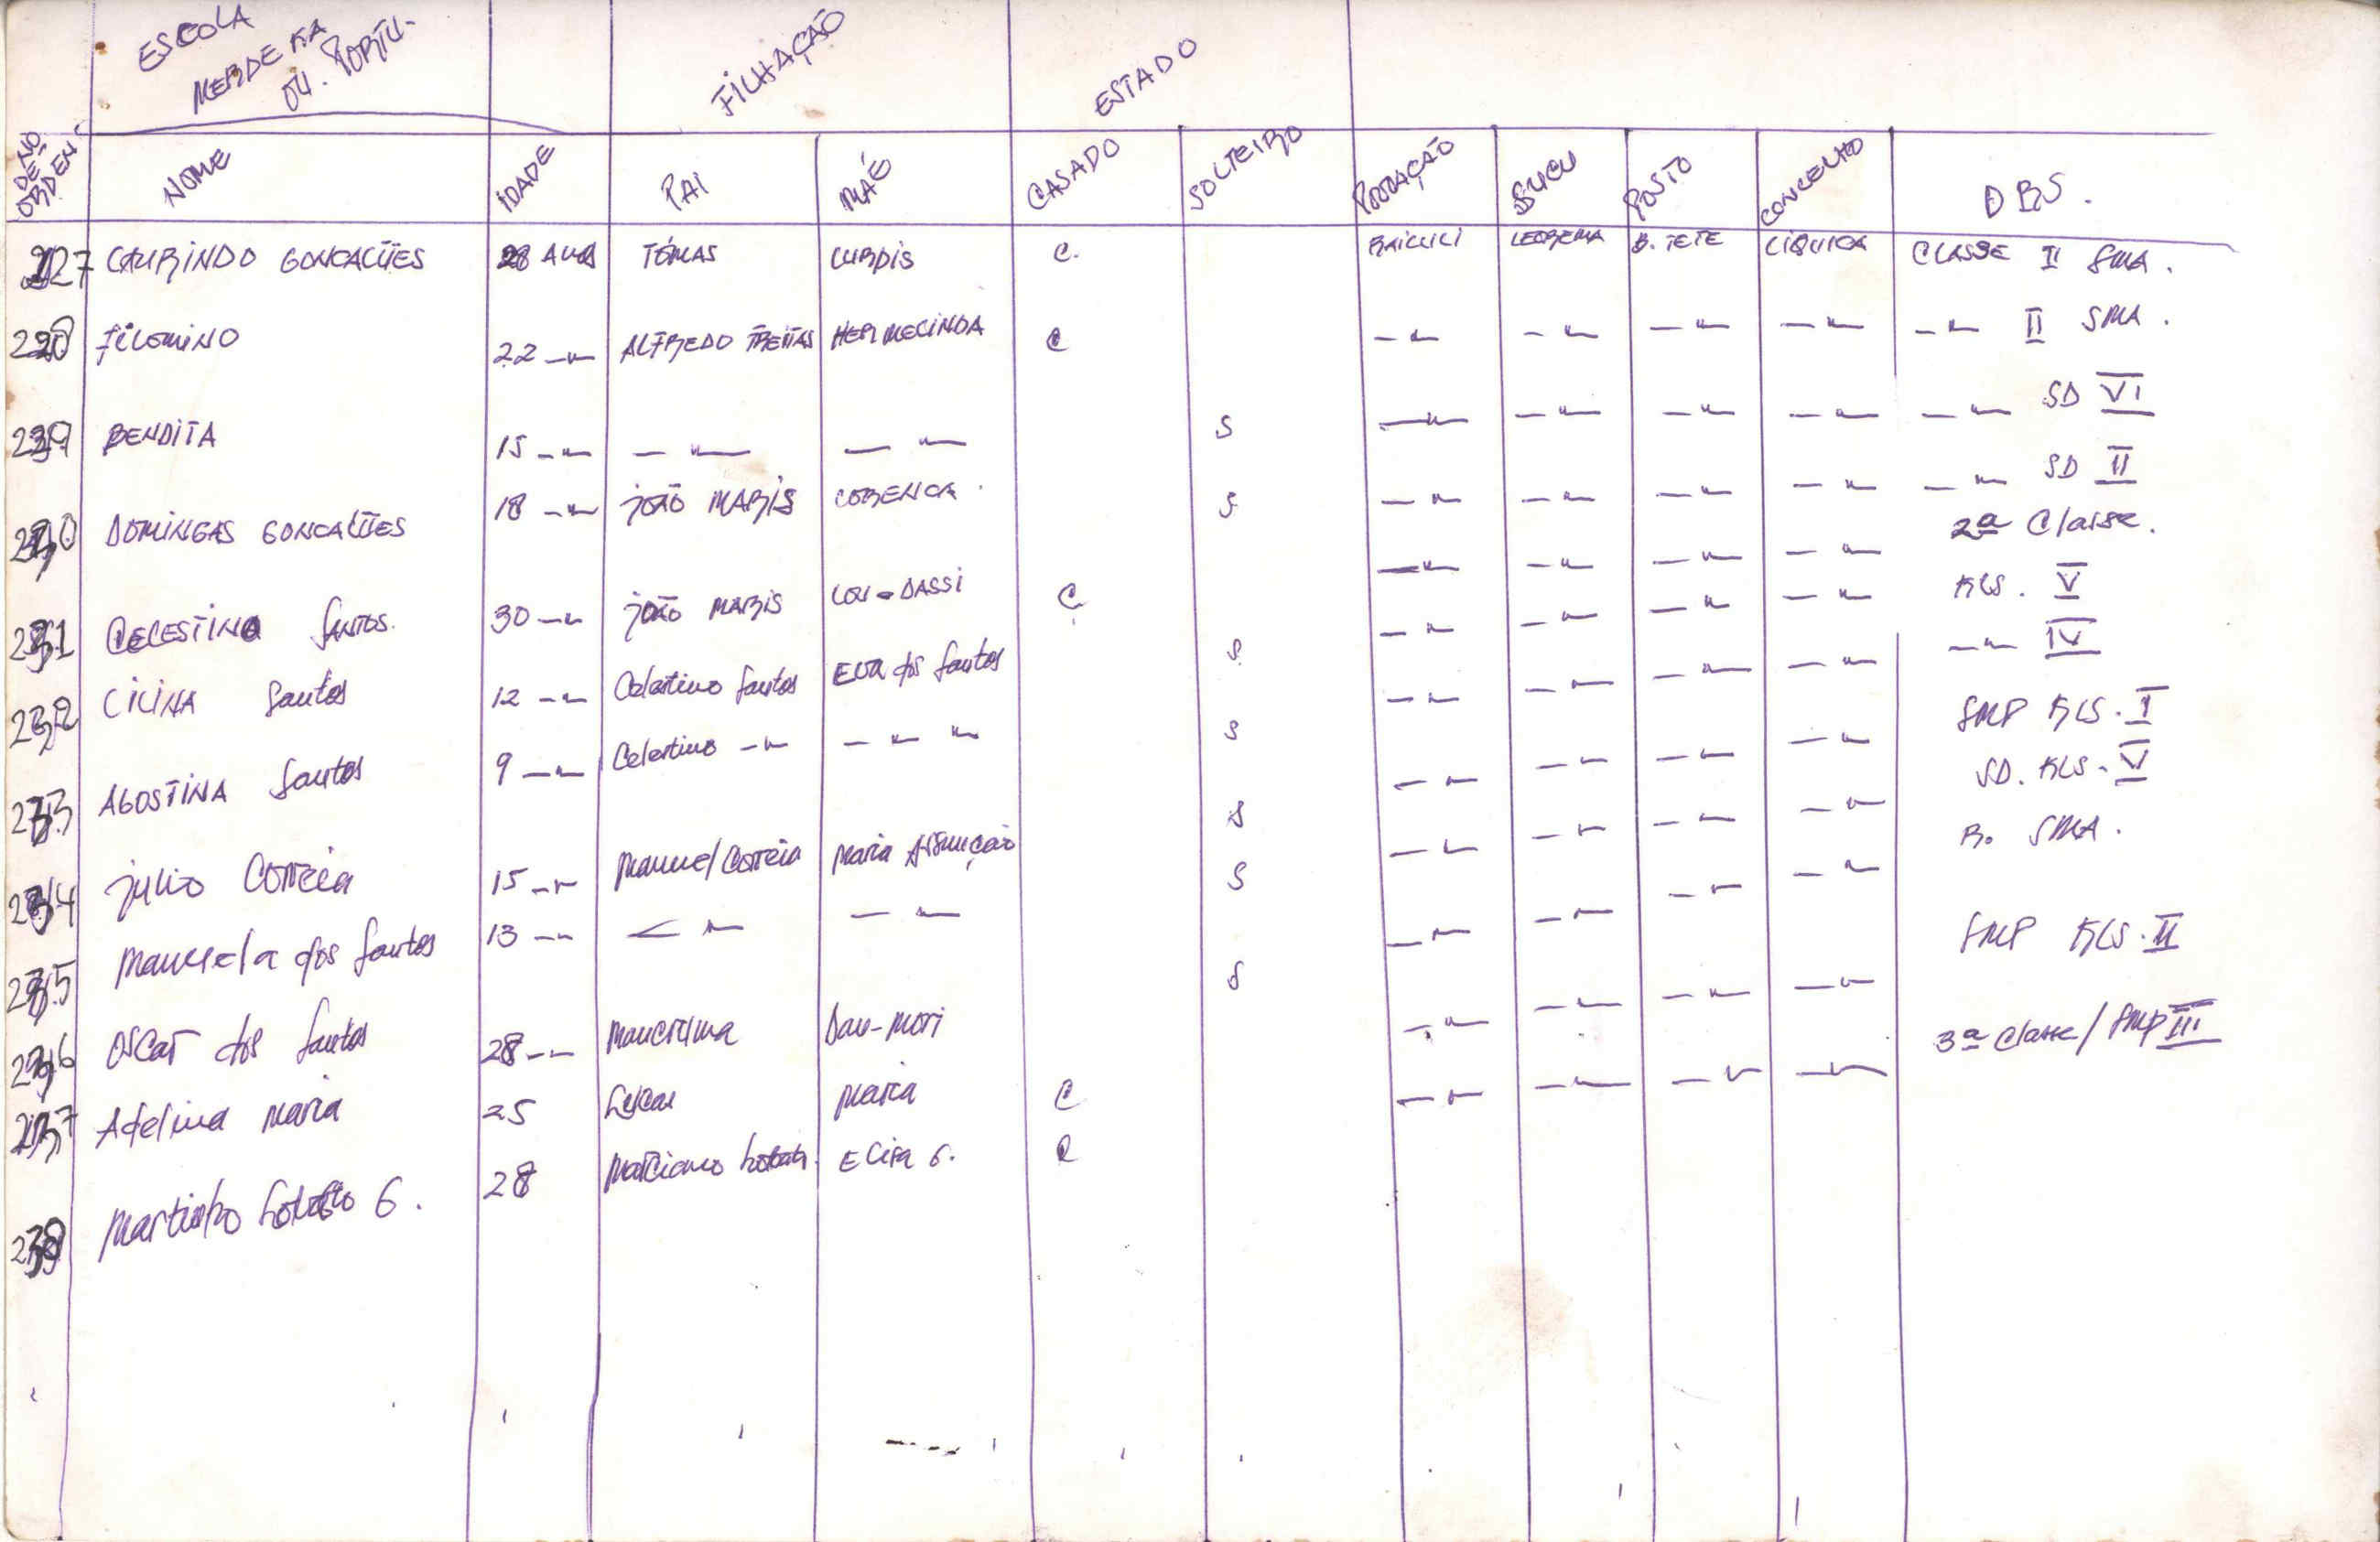 ESCOLA
MERDEKA
OU. PORTU-
FILHAÇÃO
ESTADO
NO DE ORDEN NOME IDADE PAI MÃE CASADO SOLTEIRO POVAÇÃO SUCU POSTO CONCELHO OBS.
227 LAURINDO GONCALVES 28 ANOS TÓMAS LURDIS C. BAILULI LEOREMA B. TETE LIQUICA CLASSE II SMA.
228 FILOMINO 22 -"- ALFREDO FREITAS HERMELINDA C -"- -"- -"- -"- -"- II SMA.
229 BENDITA 15 -"- -"- -"- S -"- -"- -"- -"- -"- SD VI
230 DOMINGAS GONCALVES 18 -"- JOÃO MARIS LORENCA. S -"- -"- -"- -"- -"- SD II
2ª Classe.
231 CELESTINO SANTOS. 30 -"- JOÃO MARIS LOU-DASSI C -"- -"- -"- -"- KLS. V
232 CILINA Santos 12 -"- Celestino Santos EVA dos Santos S. -"- -"- -"- -"- -"- IV
233 AGOSTINA Santos 9 -"- Celestino -"- -"- " S -"- -"- -"- -"- SMP KLS. I
SD. KLS. V
234 julio Correia 15 -"- Manuel Correia Maria Assunção S -"- -"- -"- -"- B. SMA.
235 Manuela dos Santos 13 -"- -"- -"- S -"- -"- -"- -"- SMP KLS. II
236 OSCAR dos Santos 28 -"- Dau-Mori S -"- -"- -"- -"- 3ª Classe/SMP III
237 Adelina Maria 25 Lucas Maria C -"- -"- -"- -"-
238 Martinho Lobato G. 28 Marciano Lobato. ELISA G. C